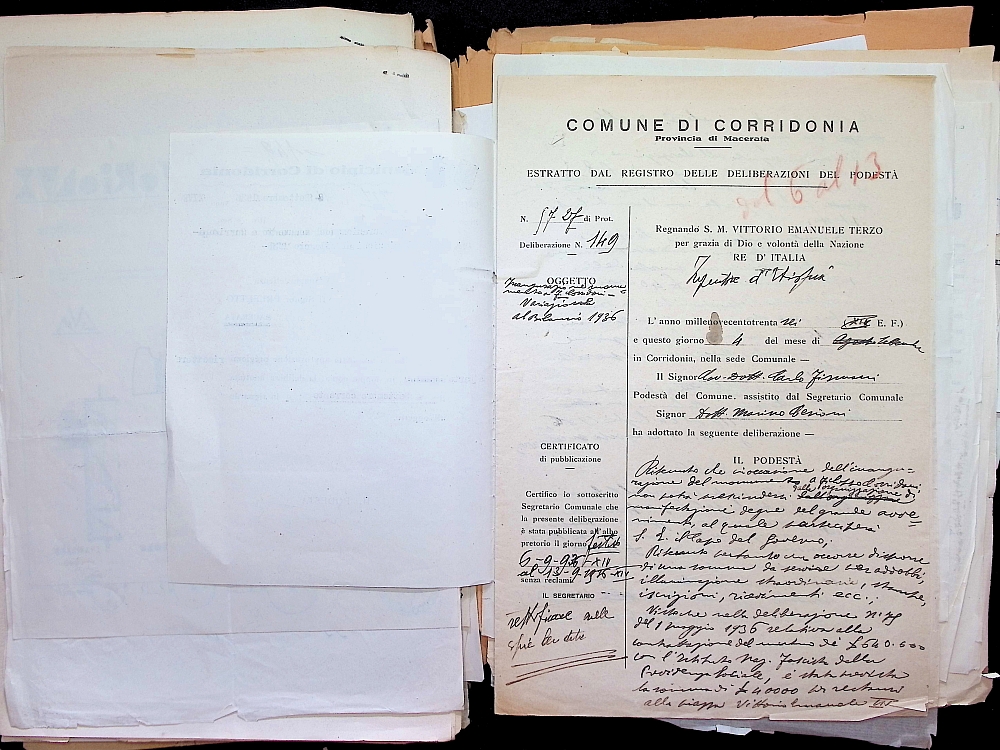 COMUNE DI CORRIDONIA
Provincia di Macerata
ESTRATTO DAL REGISTRO DELLE DELIBERAZIONI DEL PODESTÀ
dal 6 al 13
N. 5727 di Prot.
Deliberazione N. 149
OGGETTO
Inaugurazione monu-
mento a F. Corridoni -
Variazione
al Bilancio 1936
Regnando S. M. VITTORIO EMANUELE TERZO
per grazia di Dio e volontà della Nazione
RE D' ITALIA
d'Etiopia
L' anno millenovecentotrenta sei XIV E. F.)
e questo giorno 4 del mese di Agosto Settembre
in Corridonia, nella sede Comunale —
Il Signor Cav. Dott. Carlo
Podestà del Comune, assistito dal Segretario Comunale
Signor Dott. Marino
ha adottato la seguente deliberazione —
IL PODESTÀ
Ritenuto che in occasione dell'inaugu-
razione del monumento a Filippo Corridoni
non potrà prescindersi dalla organizzazione di
manifestazioni degne del grande avve-
nimento, al quale parteciperà
S. E. il Capo del Governo;
Ritenuto pertanto che occorre disporre
di una somma da servire per addobbi,
illuminazione straordinaria, stampe,
iscrizioni, ricevimenti ecc.;
Visto che nella deliberazione n. 79
del 1 maggio 1936 relativa alla
contrattazione del mutuo di £ 640.000
con l'Istituto Naz. Fascista della
Previdenza Sociale, è stata prevista
la somma di £ 40000 per restauri
alla piazza Vittorio Emanuele III
CERTIFICATO
di pubblicazione
Certifico io sottoscritto
Segretario Comunale che
la presente deliberazione
è stata pubblicata all'albo
pretorio il giorno festivo
6-9-936-XIV
al 13-9-1936-XIV
senza reclami
IL SEGRETARIO
rettificare nelle